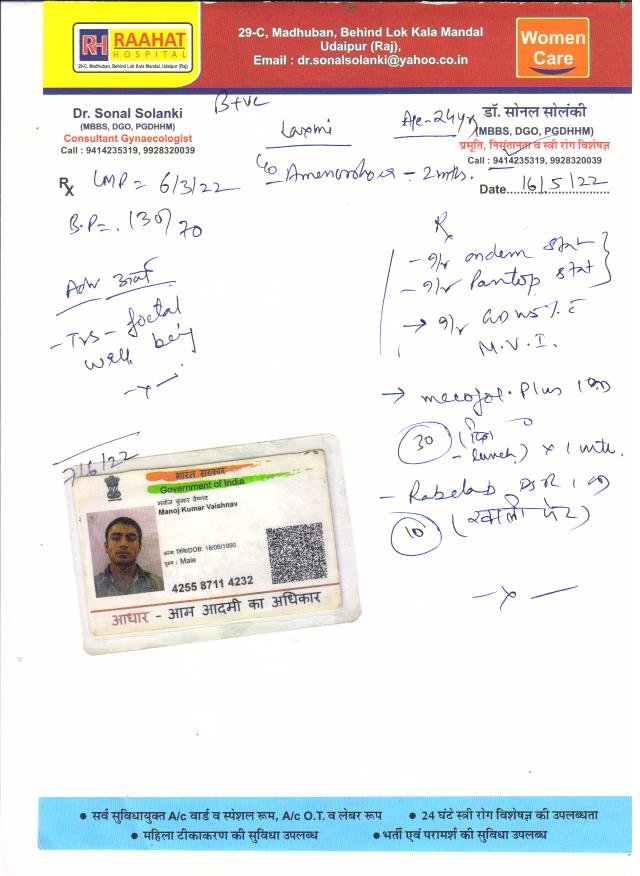 RH RAAHAT
HOSPITAL
29-C, Madhuban, Behind Lok Kala Mandal, Udaipur (Raj)
29-C, Madhuban, Behind Lok Kala Mandal
Udaipur (Raj),
Email : dr.sonalsolanki@yahoo.co.in
Women
Care
Dr. Sonal Solanki
(MBBS, DGO, PGDHHM)
Consultant Gynaecologist
Call : 9414235319, 9928320039
B+ve
Laxmi
Age-24yr
डॉ. सोनल सोलंकी
(MBBS, DGO, PGDHHM)
प्रसूति, निसंतानता व स्त्री रोग विशेषज्ञ
Call : 9414235319, 9928320039
Rx LMP = 6/3/22
c/o Amenorrhoea - 2mths.
Date 16/5/22
B.P = 130/70
Adv
- TVS - foetal
well being
-x-
Rx
- Ondem stat
- Pantop stat
→ DNS 5% c̄
M.V.I.
→ mecofol. Plus 1 OD
30
- lunch) x 1 mth.
- Rabelab DSR 1 OD
10 (खाली पेट)
-x-
7/6/22
भारत सरकार
Government of India
मनोज कुमार वैष्णव
Manoj Kumar Vaishnav
जन्म तिथि/DOB: 18/06/1990
पुरुष / Male
4255 8711 4232
आधार - आम आदमी का अधिकार
• सर्व सुविधायुक्त A/c वार्ड व स्पेशल रूम, A/c O.T. व लेबर रूप • 24 घंटे स्त्री रोग विशेषज्ञ की उपलब्धता
• महिला टीकाकरण की सुविधा उपलब्ध • भर्ती एवं परामर्श की सुविधा उपलब्ध